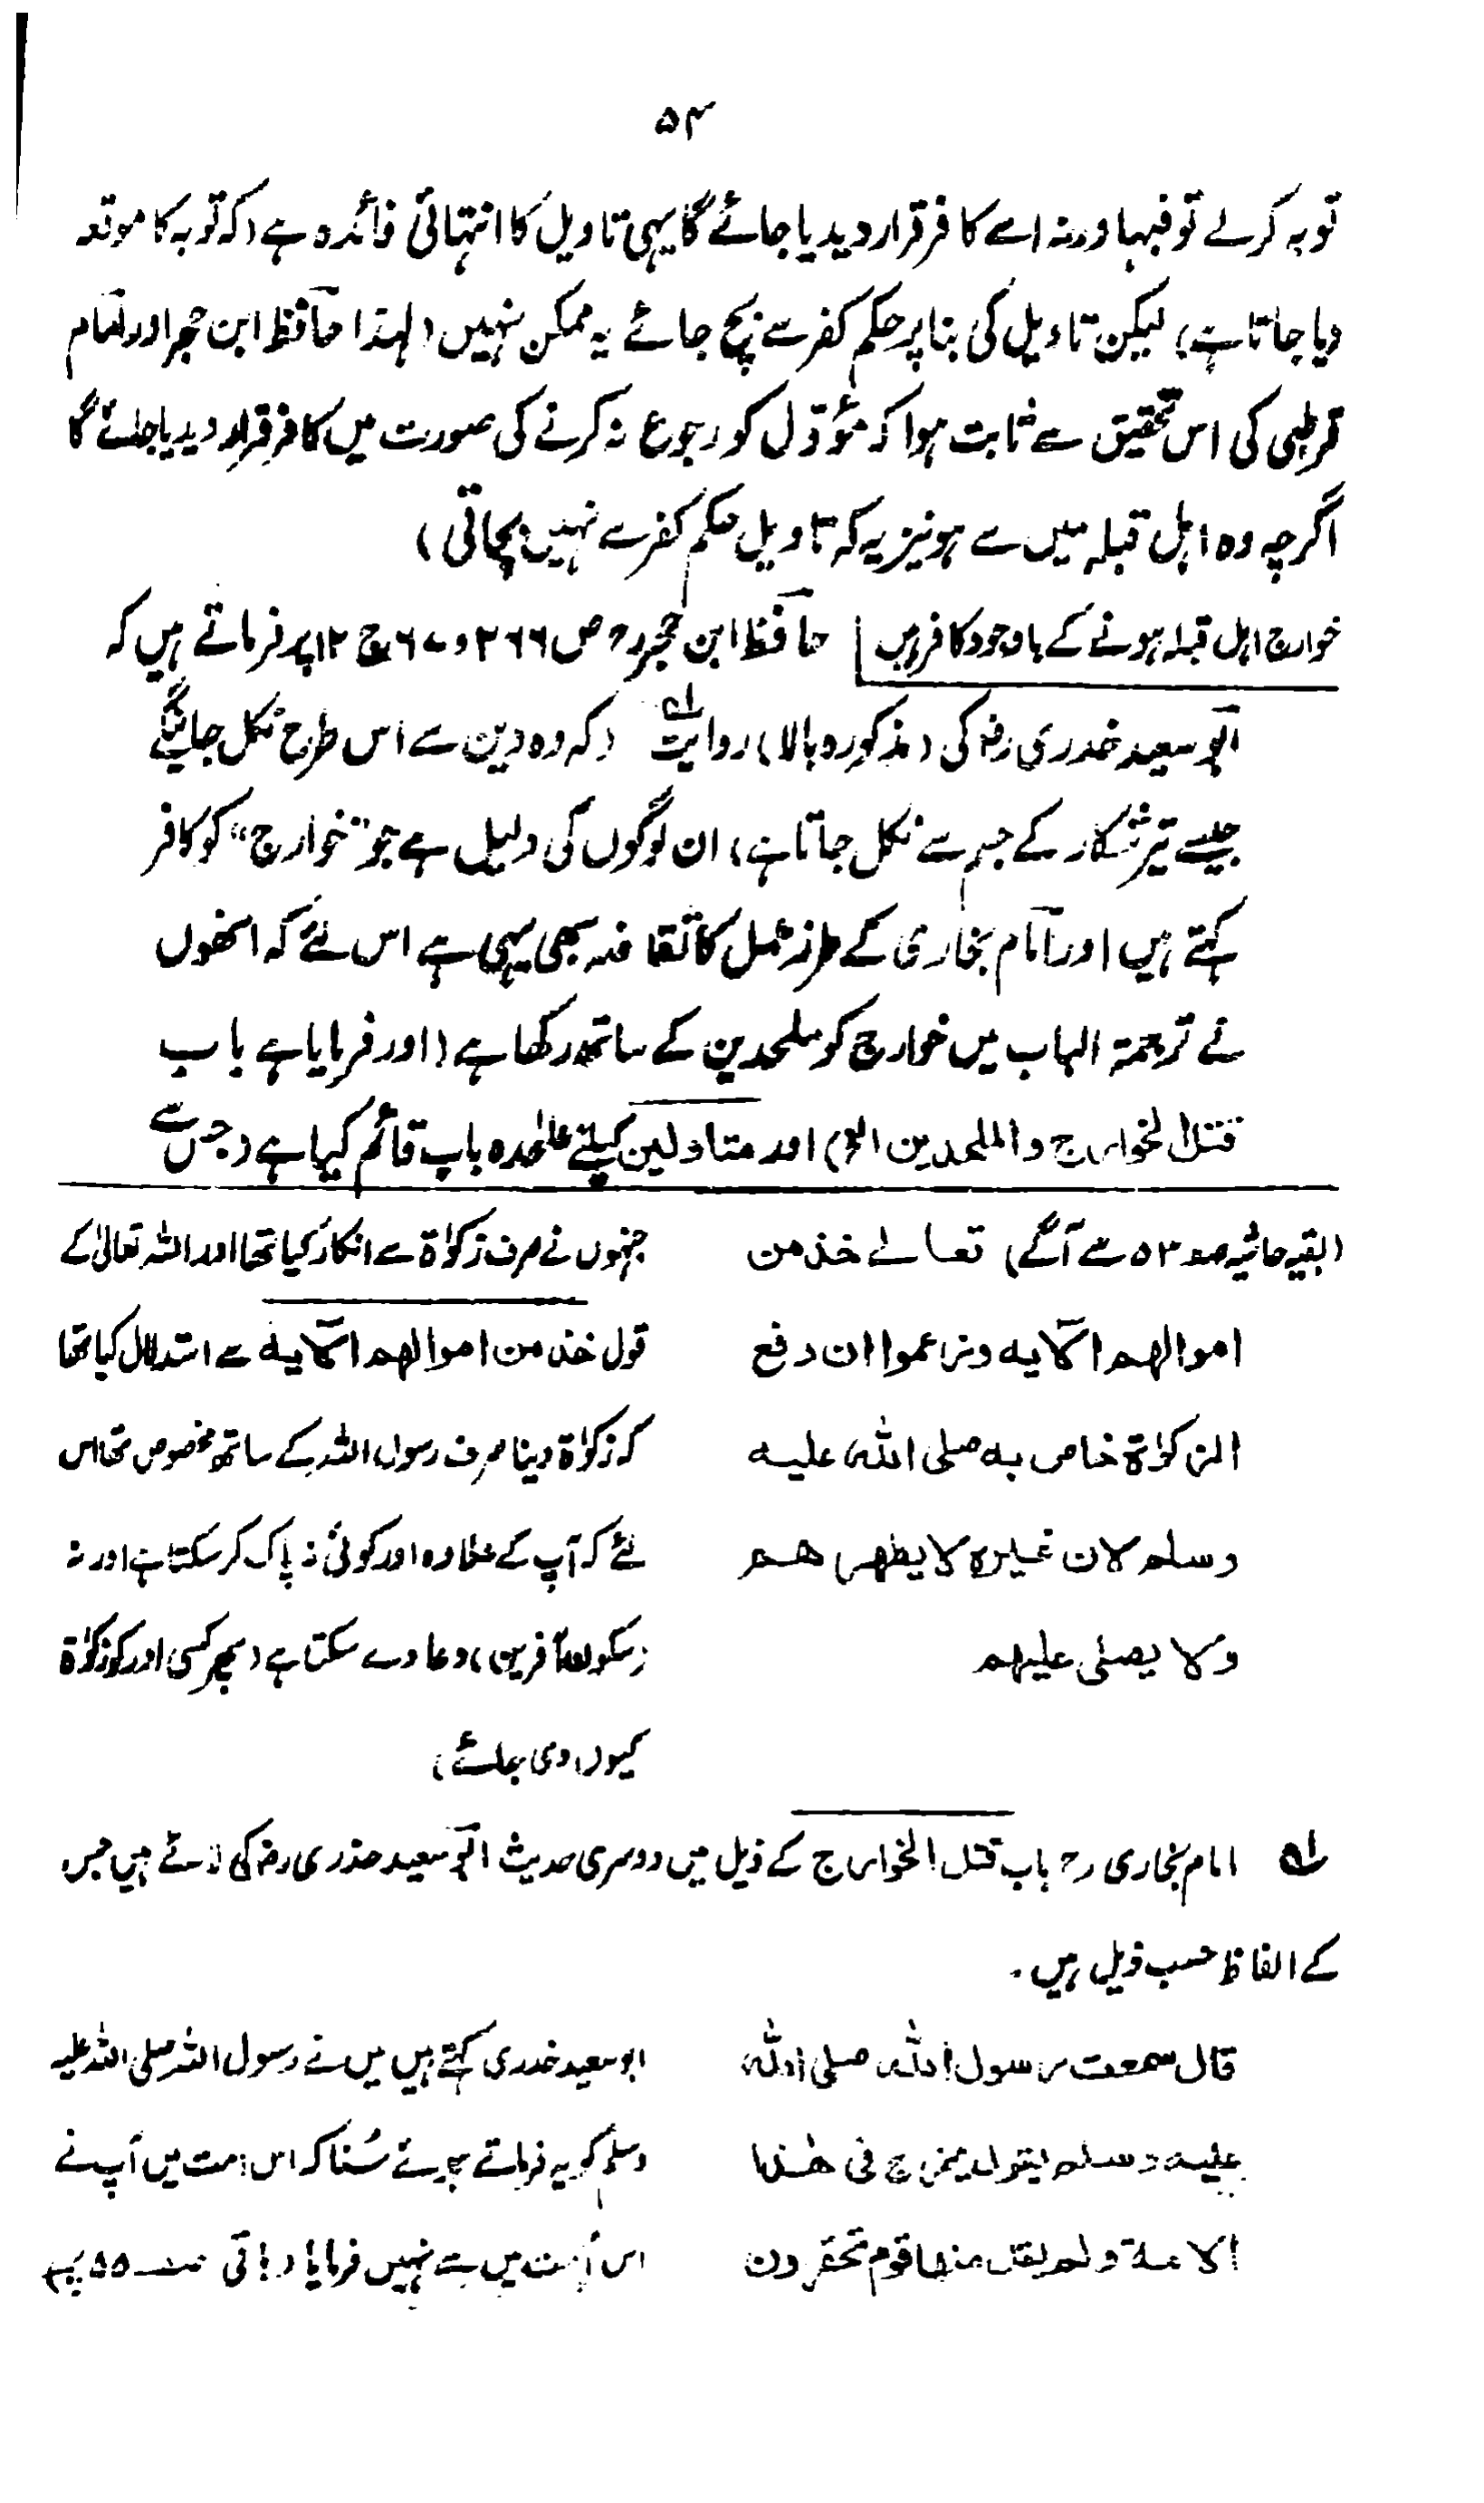 ۵۴
توبہ کرلے تو فبہا ورنہ اسے کافر قرار دیدیا جائے گا یہی تاویل کا انتہائی فائدہ ہے (کہ توبہ کا موقعہ
دیا جاتا ہے) لیکن تاویل کی بنا پر حکم کفر سے بچ جائے یہ ممکن نہیں (لہذا حافظ ابن حجر اور امام
قرطبی کی اس تحقیق سے ثابت ہوا کہ مؤوّل کو رجوع نہ کرنے کی صورت میں کافر قرار دیدیا جائے گا
اگرچہ وہ اہل قبلہ میں سے ہو نیز یہ کہ تاویل حکم کفر سے نہیں بچاتی)
خوارج اہل قبلہ ہونے کے باوجود کافر ہیں | حافظ ابن حجرؒ ص ۲۶۶ و ۲۶۷ ج ۱۲ پر فرماتے ہیں کہ
ابو سعید خدری رضؓ کی (مذکورہ بالا) روایت ۱ہ (کہ وہ دین سے اس طرح نکل جائینگے
جیسے تیر شکار کے جسم سے نکل جاتا ہے) ان لوگوں کی دلیل ہے جو "خوارج" کو کافر
کہتے ہیں اور امام بخاری کے طرز عمل کا تقاضہ بھی یہی ہے اس لئے کہ انھوں
نے ترجمۃ الباب میں خوارج کو ملحدین کے ساتھ رکھا ہے (اور فرمایا ہے باب
قتل الخوارج والملحدین الخ) اور متاولین کیلئے علٰحدہ باب قائم کیا ہے (جس سے
(بقیہ حاشیہ صہ ۵۳ سے آگے) تعالے خذ من
اموالهم الآیه وزعموا ان دفع
الزکوٰة خاص به صلی الله علیه
وسلم لان غیره لا یطهرهم
ولا یصلی علیهم
جنہوں نے صرف زکوٰۃ سے انکار کیا تھا اور اللہ تعالیٰ کے
قول خذ من اموالهم الآیه سے استدلال کیا تھا
کہ زکوٰۃ دینا صرف رسول اللہ کے ساتھ مخصوص تھا اس
لئے کہ آپ کے علاوہ اور کوئی نہ پاک کر سکتا ہے اور نہ
(سکون آفرین) دعا دے سکتا ہے (پھر کسی اور کو زکوٰۃ
کیوں دی جائے)
۱ہ امام بخاری رح باب قتل الخوارج کے ذیل میں دوسری حدیث ابو سعید خدری رضؓ کی لائے ہیں جس
کے الفاظ حسب ذیل ہیں۔
قال سمعت رسول الله صلی الله
علیه وسلم یقول یخرج فی هذه
الامة ولم یقل منها قوم تحقرون
ابو سعید خدری کہتے ہیں میں نے رسول اللہ صلی اللہ علیہ
وسلم کو یہ فرماتے ہوئے سُنا کہ اس امت میں آپ نے
اس اُمت میں سے نہیں فرمایا (باقی صہ ۵۵ پر)